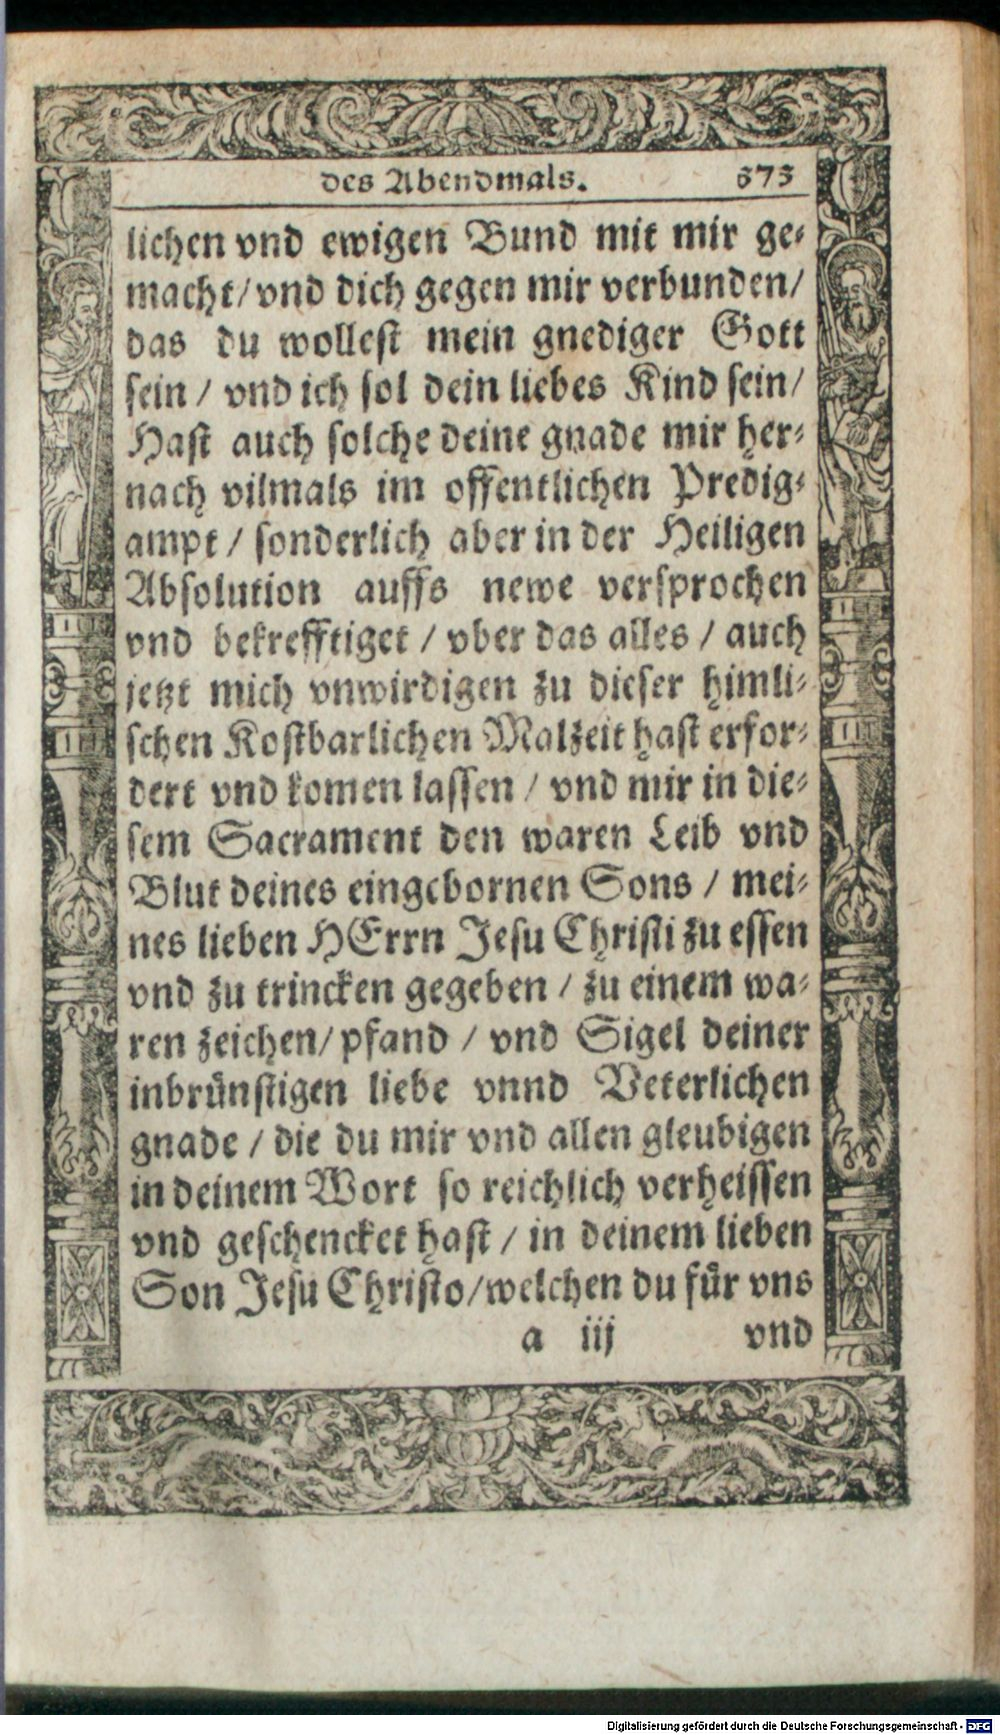 des Abendmals. 373
lichen vnd ewigen Bund mit mir ge-
macht/ vnd dich gegen mir verbunden/
das du wollest mein gnediger Gott
sein / vnd ich sol dein liebes Kind sein/
Hast auch solche deine gnade mir her-
nach vilmals im offentlichen Predig-
ampt / sonderlich aber in der Heiligen
Absolution auffs newe versprochen
vnd bekrefftiget / vber das alles / auch
jetzt mich vnwirdigen zu dieser himli-
schen Kostbarlichen Malzeit hast erfor-
dert vnd komen lassen / vnd mir in die-
sem Sacrament den waren Leib vnd
Blut deines eingebornen Sons / mei-
nes lieben HErrn Jesu Christi zu essen
vnd zu trincken gegeben / zu einem wa-
ren zeichen/ pfand / vnd Sigel deiner
inbrünstigen liebe vnnd Veterlichen
gnade / die du mir vnd allen gleubigen
in deinem Wort so reichlich verheissen
vnd geschencket hast / in deinem lieben
Son Jesu Christo/welchen du für vns
a iij vnd
Digitalisierung gefördert durch die Deutsche Forschungsgemeinschaft - DFG